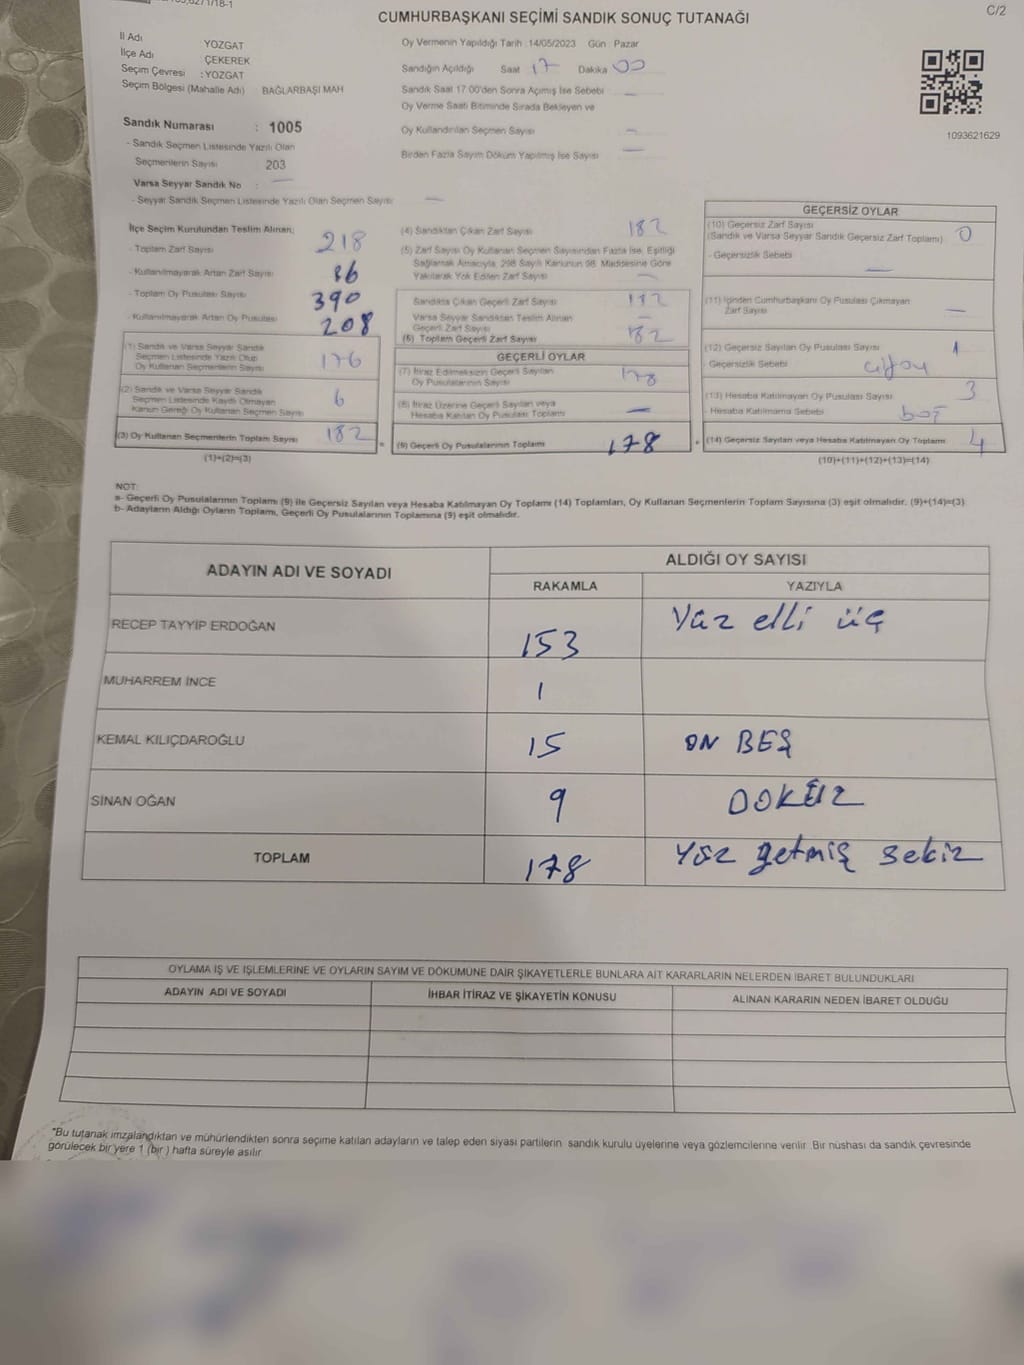 CUMHURBAŞKANI SEÇİMİ SANDIK SONUÇ TUTANAĞI
C/2
İl Adı YOZGAT
İlçe Adı ÇEKEREK
Seçim Çevresi : YOZGAT
Seçim Bölgesi (Mahalle Adı) BAĞLARBAŞI MAH
Sandık Numarası : 1005
- Sandık Seçmen Listesinde Yazılı Olan
Seçmenlerin Sayısı 203
Varsa Seyyar Sandık No : —
- Seyyar Sandık Seçmen Listesinde Yazılı Olan Seçmen Sayısı —
Oy Vermenin Yapıldığı Tarih : 14/05/2023 Gün : Pazar
Sandığın Açıldığı Saat 17 Dakika 00
Sandık Saat 17.00'den Sonra Açılmış İse Sebebi —
Oy Verme Saati Bitiminde Sırada Bekleyen ve
Oy Kullandırılan Seçmen Sayısı —
Birden Fazla Sayım Döküm Yapılmış İse Sayısı —
1093621629
İlçe Seçim Kurulundan Teslim Alınan;
- Toplam Zarf Sayısı 218
- Kullanılmayarak Artan Zarf Sayısı
- Toplam Oy Pusulası Sayısı 390
- Kullanılmayarak Artan Oy Pusulası 208
(1) Sandık ve Varsa Seyyar Sandık
Seçmen Listesinde Yazılı Olup
Oy Kullanan Seçmenlerin Sayısı 176
(2) Sandık ve Varsa Seyyar Sandık
Seçmen Listesinde Kayıtlı Olmayan
Kanun Gereği Oy Kullanan Seçmen Sayısı 6
(3) Oy Kullanan Seçmenlerin Toplam Sayısı 182 =
(1)+(2)=(3)
(4) Sandıktan Çıkan Zarf Sayısı 182
(5) Zarf Sayısı Oy Kullanan Seçmen Sayısından Fazla İse, Eşitliği
Sağlamak Amacıyla, 298 Sayılı Kanunun 98. Maddesine Göre
Yakılarak Yok Edilen Zarf Sayısı —
Sandıkta Çıkan Geçerli Zarf Sayısı 182
Varsa Seyyar Sandıktan Teslim Alınan
Geçerli Zarf Sayısı —
(6) Toplam Geçerli Zarf Sayısı 182
GEÇERLİ OYLAR
(7) İtiraz Edilmeksizin Geçerli Sayılan
Oy Pusulalarının Sayısı 178
(8) İtiraz Üzerine Geçerli Sayılan veya
Hesaba Katılan Oy Pusulası Toplamı —
(9) Geçerli Oy Pusulalarının Toplamı 178 +
GEÇERSİZ OYLAR
(10) Geçersiz Zarf Sayısı
(Sandık ve Varsa Seyyar Sandık Geçersiz Zarf Toplamı) 0
- Geçersizlik Sebebi —
(11) İçinden Cumhurbaşkanı Oy Pusulası Çıkmayan
Zarf Sayısı —
(12) Geçersiz Sayılan Oy Pusulası Sayısı 1
- Geçersizlik Sebebi
(13) Hesaba Katılmayan Oy Pusulası Sayısı 3
- Hesaba Katılmama Sebebi boş
(14) Geçersiz Sayılan veya Hesaba Katılmayan Oy Toplamı 4
(10)+(11)+(12)+(13)=(14)
NOT:
a- Geçerli Oy Pusulalarının Toplamı (9) ile Geçersiz Sayılan veya Hesaba Katılmayan Oy Toplamı (14) Toplamları, Oy Kullanan Seçmenlerin Toplam Sayısına (3) eşit olmalıdır. (9)+(14)=(3)
b- Adayların Aldığı Oyların Toplamı, Geçerli Oy Pusulalarının Toplamına (9) eşit olmalıdır.
ADAYIN ADI VE SOYADI
ALDIĞI OY SAYISI
RAKAMLA YAZIYLA
RECEP TAYYİP ERDOĞAN 153 Yüz elli üç
MUHARREM İNCE 1
KEMAL KILIÇDAROĞLU 15 ON BEŞ
SİNAN OĞAN 9 DOKUZ
TOPLAM 178 Yüz yetmiş sekiz
OYLAMA İŞ VE İŞLEMLERİNE VE OYLARIN SAYIM VE DÖKÜMÜNE DAİR ŞİKAYETLERLE BUNLARA AİT KARARLARIN NELERDEN İBARET BULUNDUKLARI
ADAYIN ADI VE SOYADI İHBAR İTİRAZ VE ŞİKAYETİN KONUSU ALINAN KARARIN NEDEN İBARET OLDUĞU
*Bu tutanak imzalandıktan ve mühürlendikten sonra seçime katılan adayların ve talep eden siyasi partilerin sandık kurulu üyelerine veya gözlemcilerine verilir. Bir nüshası da sandık çevresinde
görülecek bir yere 1 (bir ) hafta süreyle asılır.